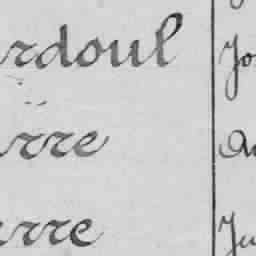 rdoul Jo
rre Au
rre Ju